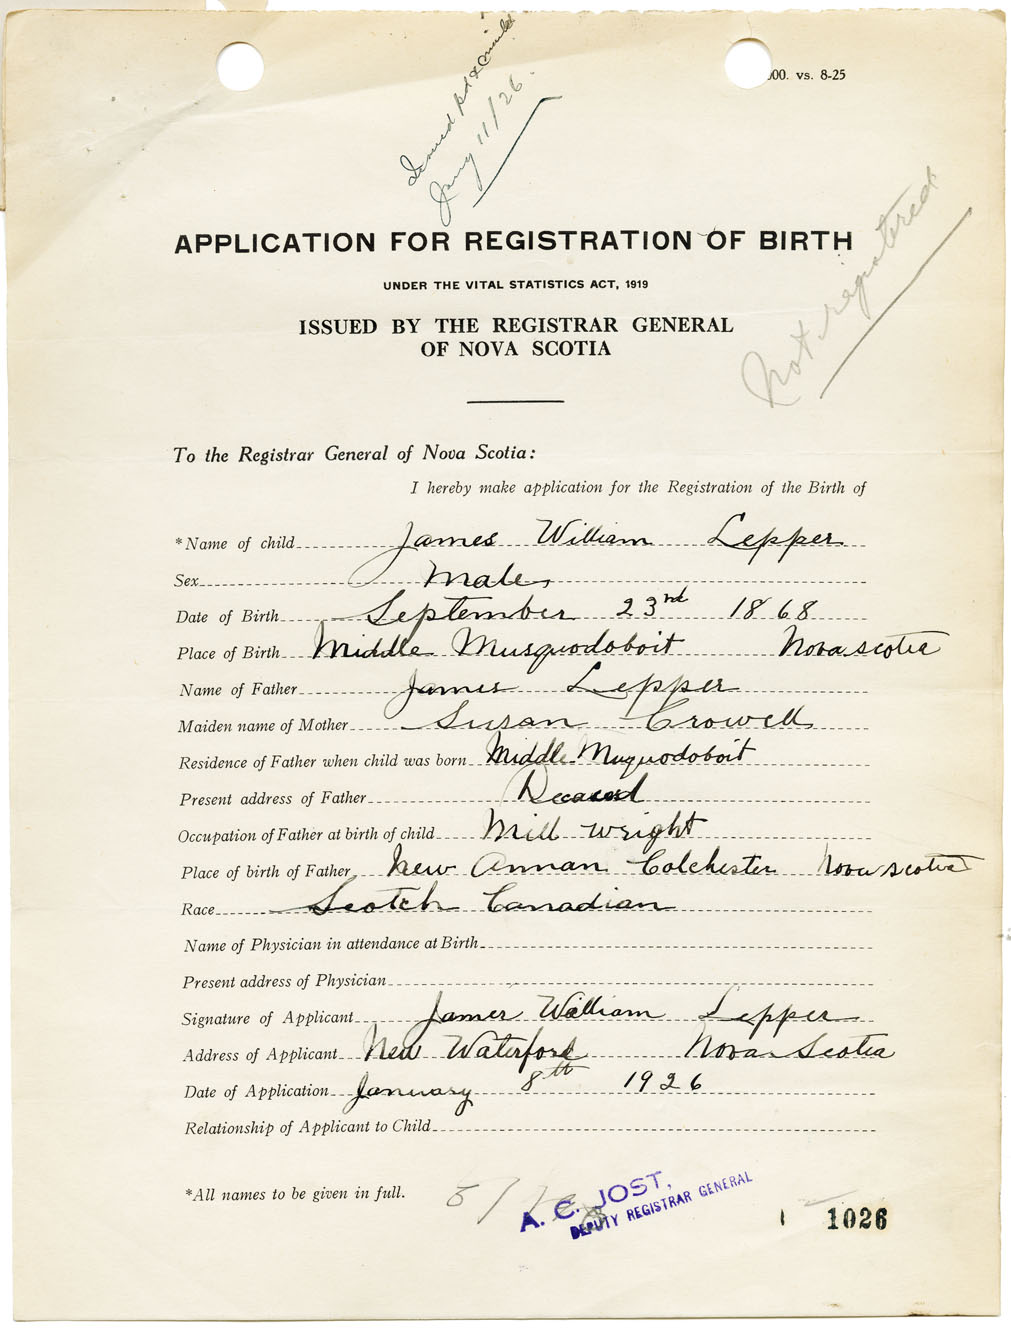 00. vs. 8-25
Issued
Jany 11/26.
APPLICATION FOR REGISTRATION OF BIRTH
UNDER THE VITAL STATISTICS ACT, 1919
ISSUED BY THE REGISTRAR GENERAL
OF NOVA SCOTIA
Not registered
To the Registrar General of Nova Scotia:
I hereby make application for the Registration of the Birth of
*Name of child James William Lepper
Sex Male
Date of Birth September 23rd 1868
Place of Birth Middle Musquodoboit Nova scotia
Name of Father James Lepper
Maiden name of Mother Susan Crowell
Residence of Father when child was born Middle Muquodoboit
Present address of Father Deceased
Occupation of Father at birth of child Mill wright
Place of birth of Father New Annan Colchester Nova scotia
Race Scotch Canadian
Name of Physician in attendance at Birth
Present address of Physician
Signature of Applicant James William Lepper
Address of Applicant New Waterford Nova Scotia
Date of Application January 8th 1926
Relationship of Applicant to Child
*All names to be given in full.
A. C. JOST,
DEPUTY REGISTRAR GENERAL
1026